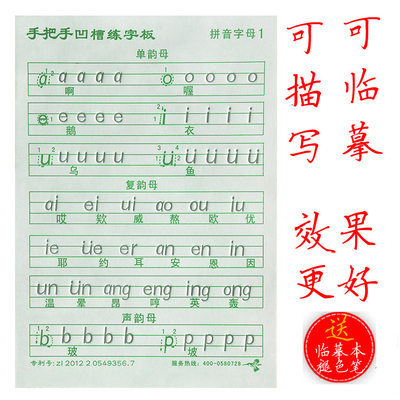 手把手凹槽练字板 拼音字母1
单韵母
a a a a a o o o o o
啊 喔
e e e e e i i i i i
鹅 衣
u u u u u ü ü ü ü ü
乌 鱼
复韵母
ai ei ui ao ou iu
哎 欸 威 熬 欧 优
ie üe er an en in
耶 约 耳 安 恩 因
un ün ang eng ing ong
温 晕 昂 哼 英 轰
声韵母
b b b b b p p p p p
玻 坡
专利号: zl 2012 2 0549356.7 服务热线: 400-0580728
可描写
可临摹
效果更好
送
临摹本
褪色笔